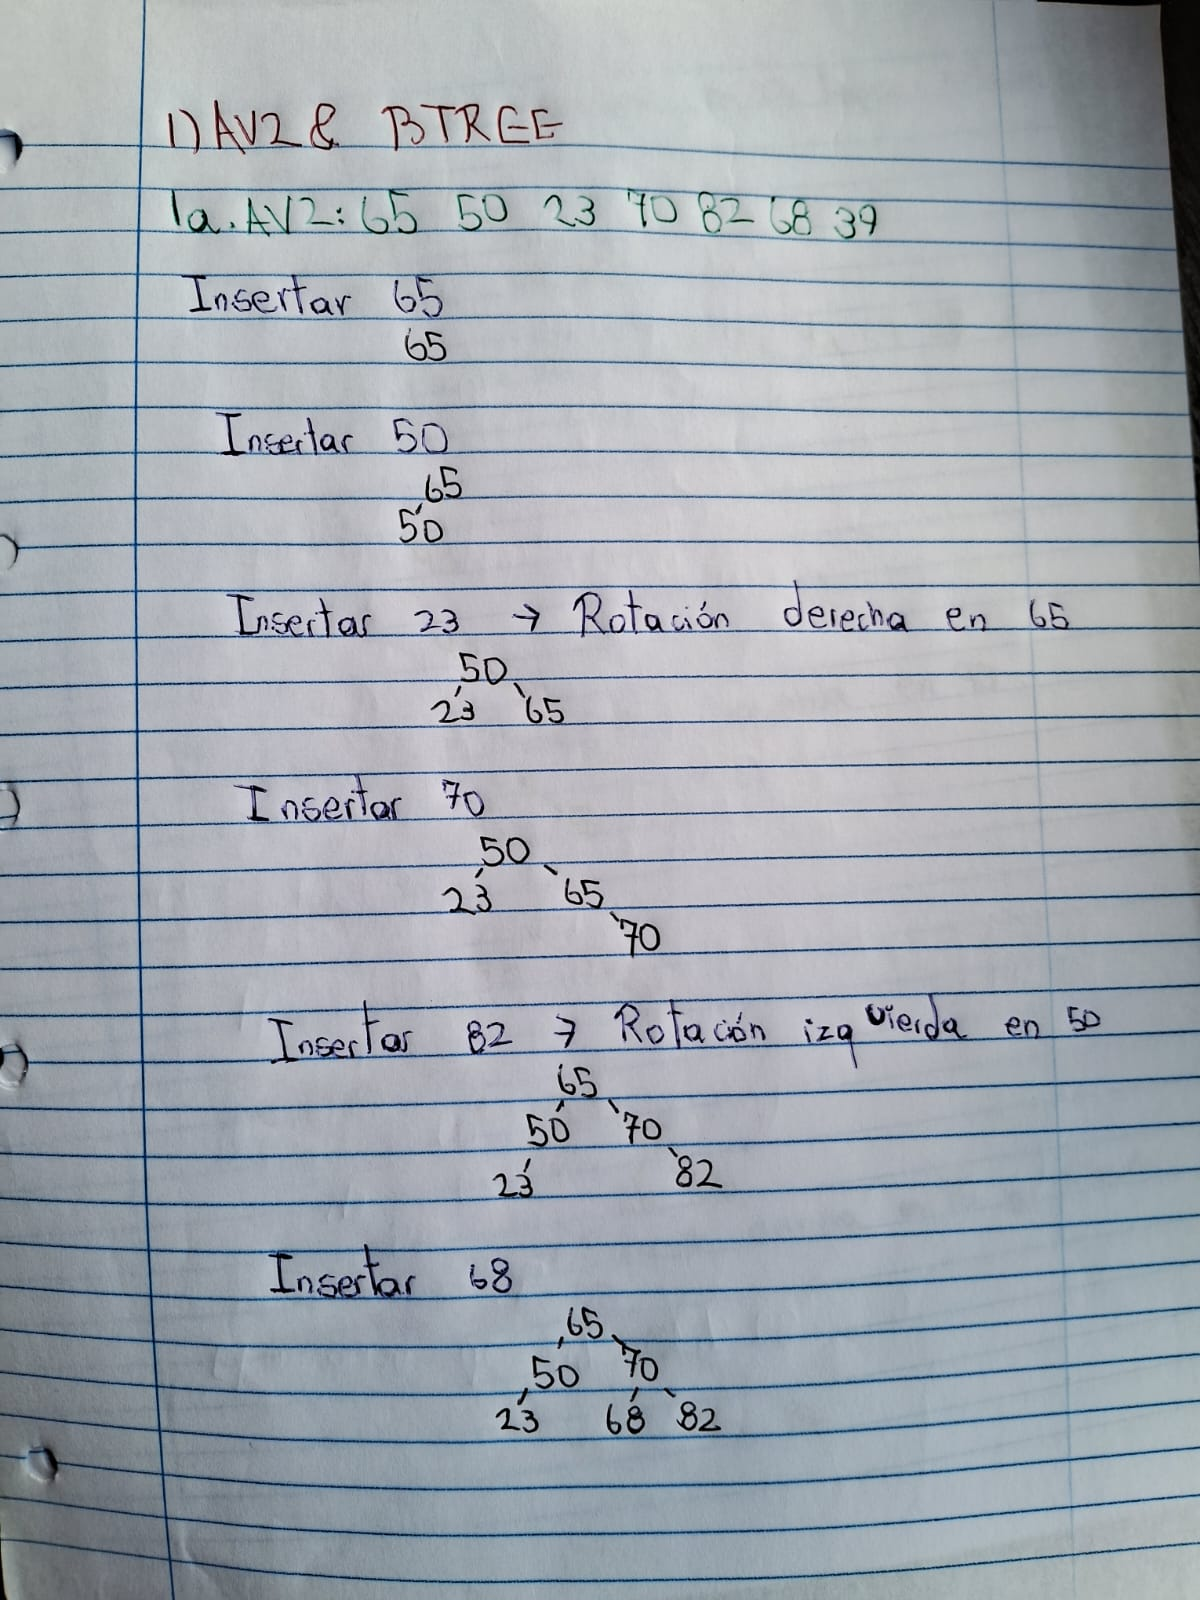 1) AVL & BTREE
1a. AVL: 65 50 23 70 82 68 39
Insertar 65
65
Insertar 50
65
50
Insertar 23 → Rotación derecha en 65
50
23 65
Insertar 70
50
23 65
70
Insertar 82 → Rotación izquierda en 50
65
50 70
23 82
Insertar 68
65
50 70
23 68 82